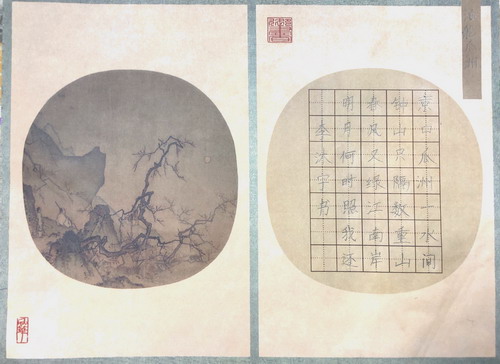 京口瓜洲一水间
钟山只隔数重山
春风又绿江南岸
明月何时照我还
李沃宇书